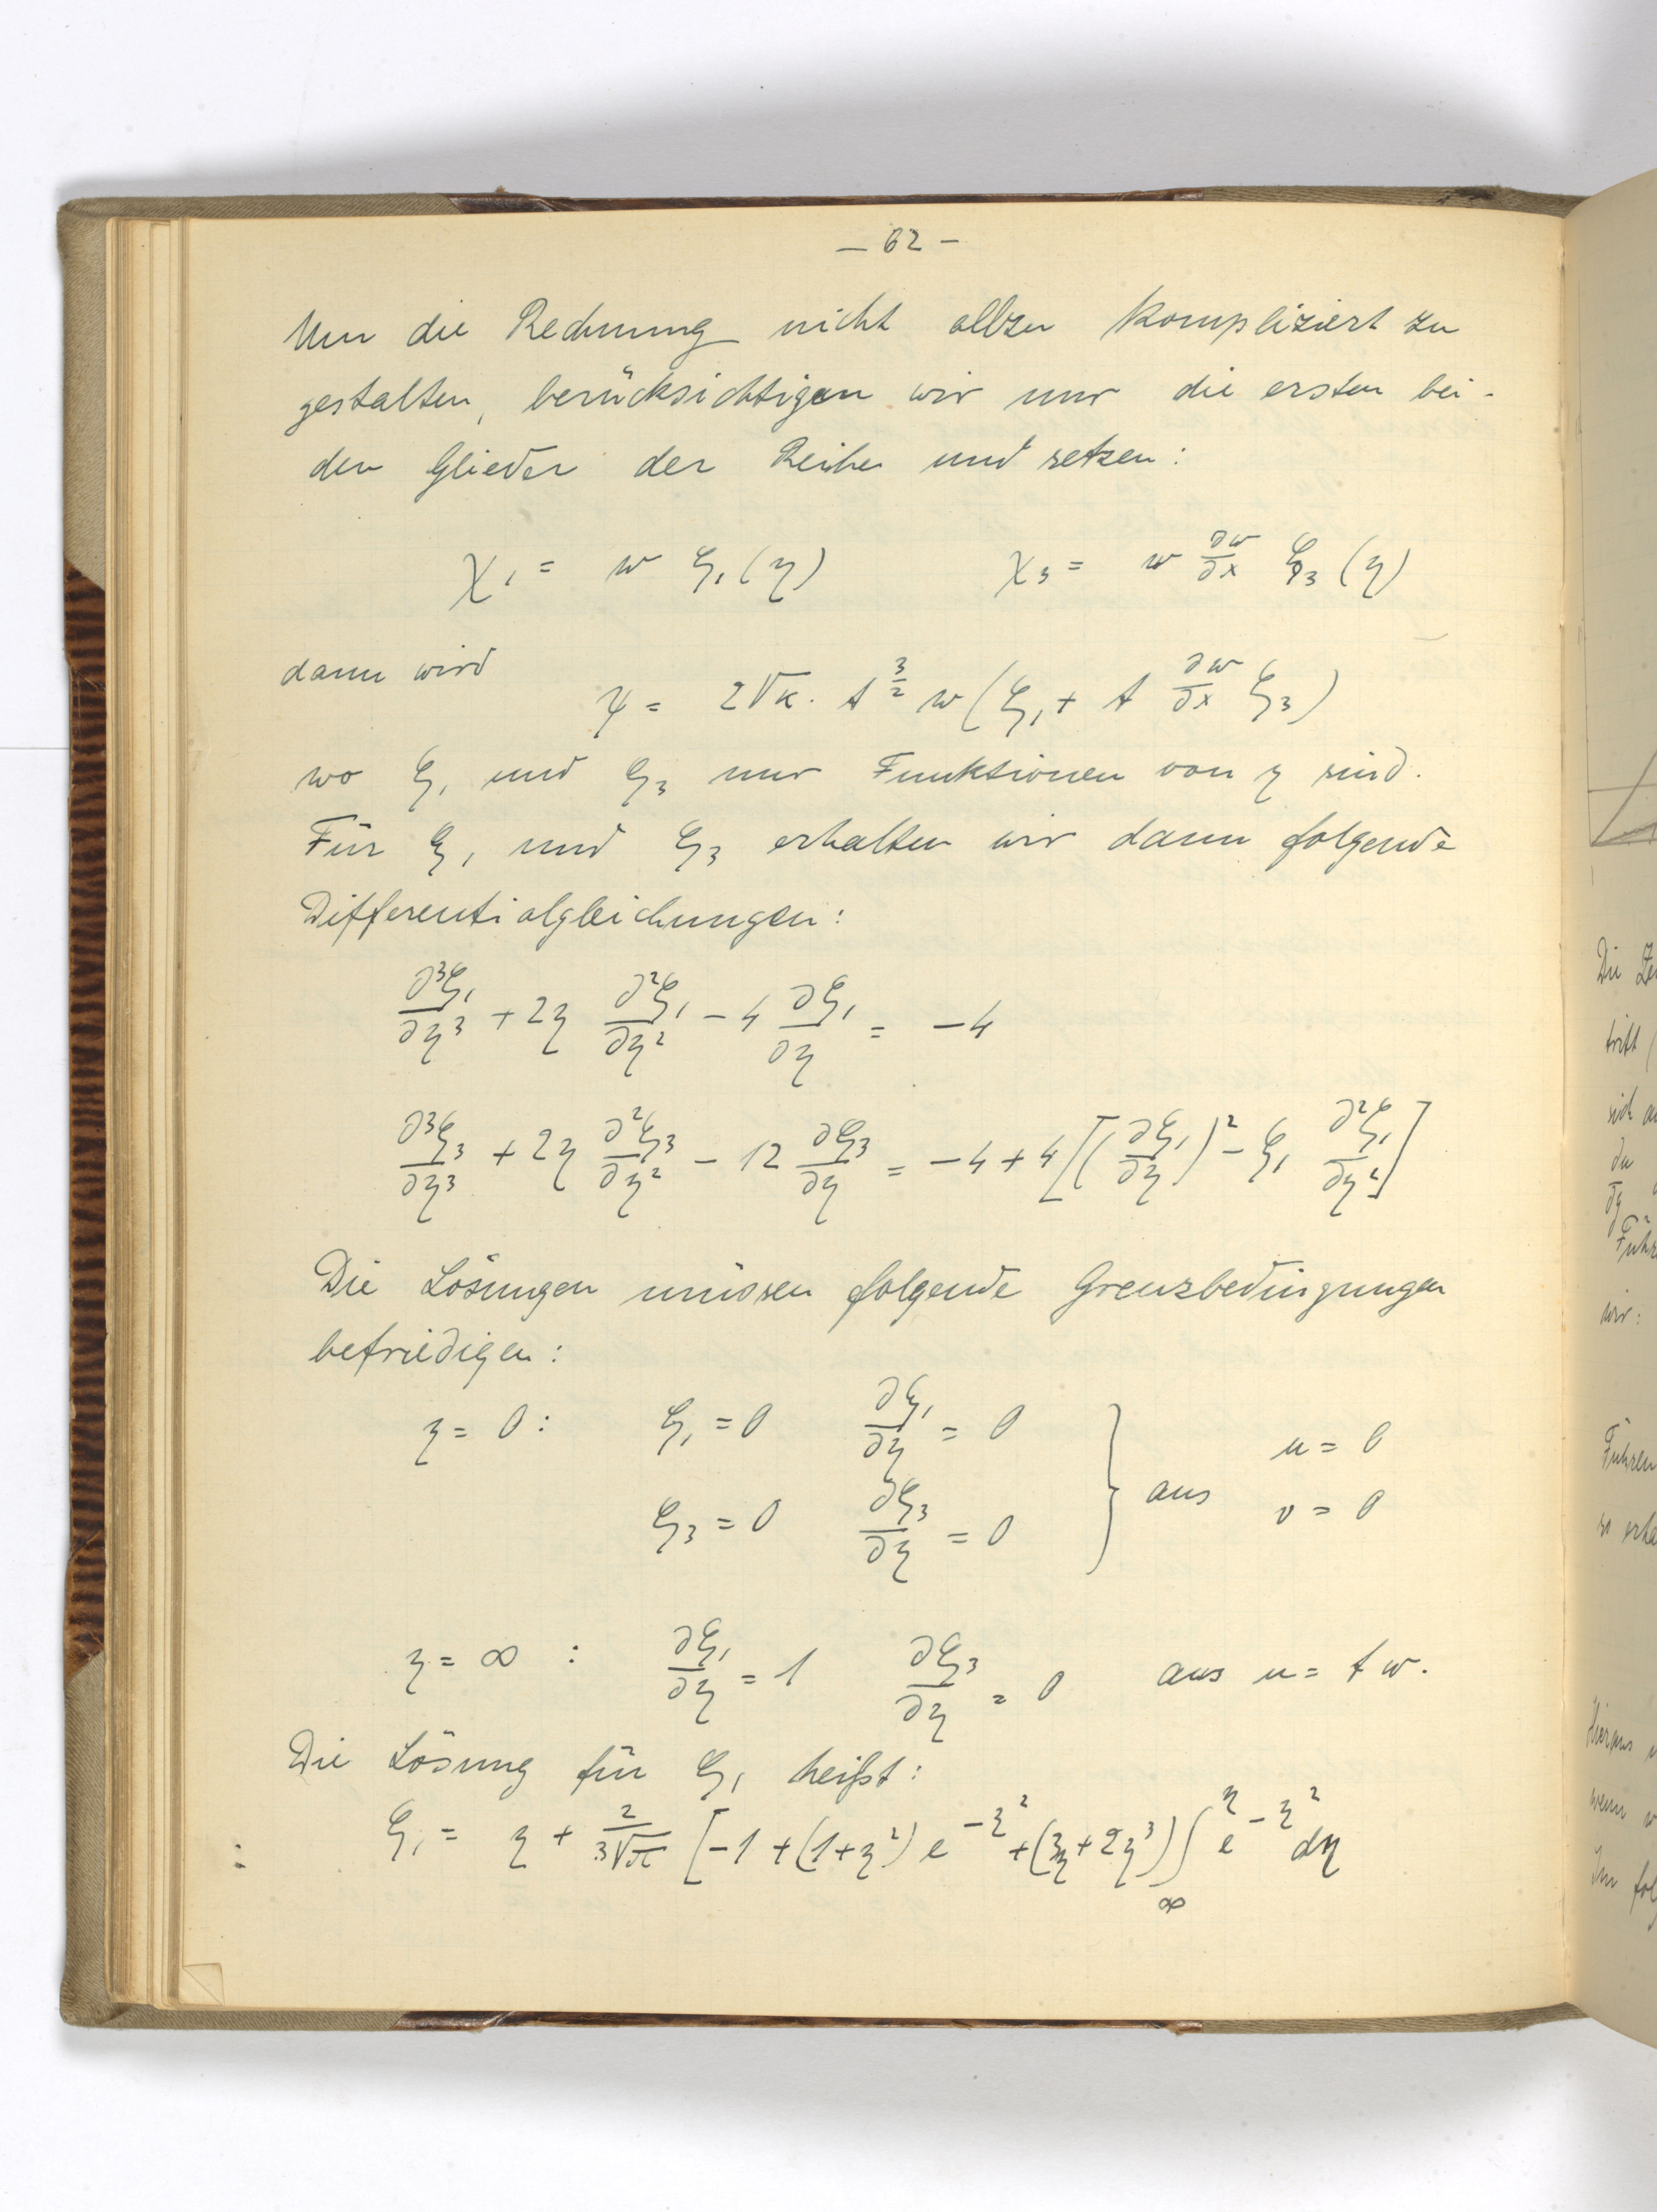 — 62 —
Um die Rechnung nicht allzu kompliziert zu
gestalten, berücksichtigen wir nur die ersten bei-
den Glieder der Reihe und setzen:
χ₁ = w ζ₁(η)   χ₃ = w ∂w/∂x ζ₃(η)
dann wird
ψ = 2√κ · t^(3/2) w (ζ₁ + t ∂w/∂x ζ₃)
wo ζ₁ und ζ₃ nur Funktionen von η sind.
Für ζ₁ und ζ₃ erhalten wir dann folgende
Differentialgleichungen:
∂³ζ₁/∂η³ + 2η ∂²ζ₁/∂η² − 4 ∂ζ₁/∂η = −4
∂³ζ₃/∂η³ + 2η ∂²ζ₃/∂η² − 12 ∂ζ₃/∂η = −4 + 4[(∂ζ₁/∂η)² − ζ₁ ∂²ζ₁/∂η²]
Die Lösungen müssen folgende Grenzbedingungen
befriedigen:
η = 0:   ζ₁ = 0   ∂ζ₁/∂η = 0   u = 0
} aus
ζ₃ = 0   ∂ζ₃/∂η = 0   v = 0
η = ∞ :   ∂ζ₁/∂η = 1   ∂ζ₃/∂η = 0   aus u = t w.
Die Lösung für ζ₁ heißt:
ζ₁ = η + 2/(3√π) [−1 + (1+η²) e^(−η²) + (3η + 2η³) ∫_∞^η e^(−η²) dη
Die
tritt
wir:
Führen
Hieraus
wenn
Im